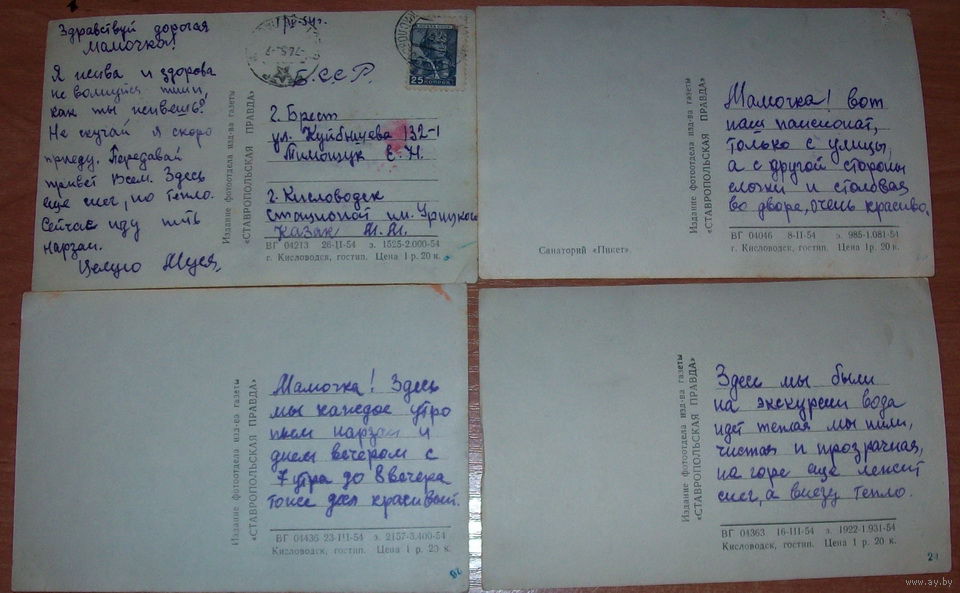 Здравствуй дорогая
Мамочка!
Я жива и здорова
не волнуйся пиши,
как ты живешь?
Не скучай я скоро
приеду. Передавай
привет всем. Здесь
еще снег, но тепло.
Сейчас иду пить
нарзан.
Целую Муся.
Издание фотоотдела изд-ва газеты
«СТАВРОПОЛЬСКАЯ ПРАВДА»
25
КОПЕЕК
Б.С.С.Р.
г. Брест
ул. Куйбышева 132-1
Тимощук Е. Н.
г. Кисловодск
им. Урицкого
Казак М. М.
ВГ 04213 26-II-54 з. 1525-2.000-54
г. Кисловодск, гостип. Цена 1 р. 20 к.
Санаторий «Пикет».
Издание фотоотдела изд-ва газеты
«СТАВРОПОЛЬСКАЯ ПРАВДА»
Мамочка! вот
наш пансионат,
только с улицы,
а с другой стороны
и столовая
во дворе, очень красиво.
ВГ 04046 8-II-54 з. 985-1.081-54
г. Кисловодск, гостип. Цена 1 р. 20 к.
Издание фотоотдела изд-ва газеты
«СТАВРОПОЛЬСКАЯ ПРАВДА»
Мамочка! Здесь
мы каждое утро
пьем нарзан и
днем вечером с
7 утра до 8 вечера
тоже красивый.
ВГ 04436 23-III-54 з. 2157-3.400-54
Кисловодск, гостип. Цена 1 р. 20 к.
Издание фотоотдела изд-ва газеты
«СТАВРОПОЛЬСКАЯ ПРАВДА»
Здесь мы были
на экскурсии вода
идет теплая мы пили,
чистая и прозрачная,
на горе еще лежит
снег, а внизу тепло.
ВГ 04363 16-III-54 з. 1922-1.931-54
Кисловодск, гостип. Цена 1 р. 20 к.
www.ay.by